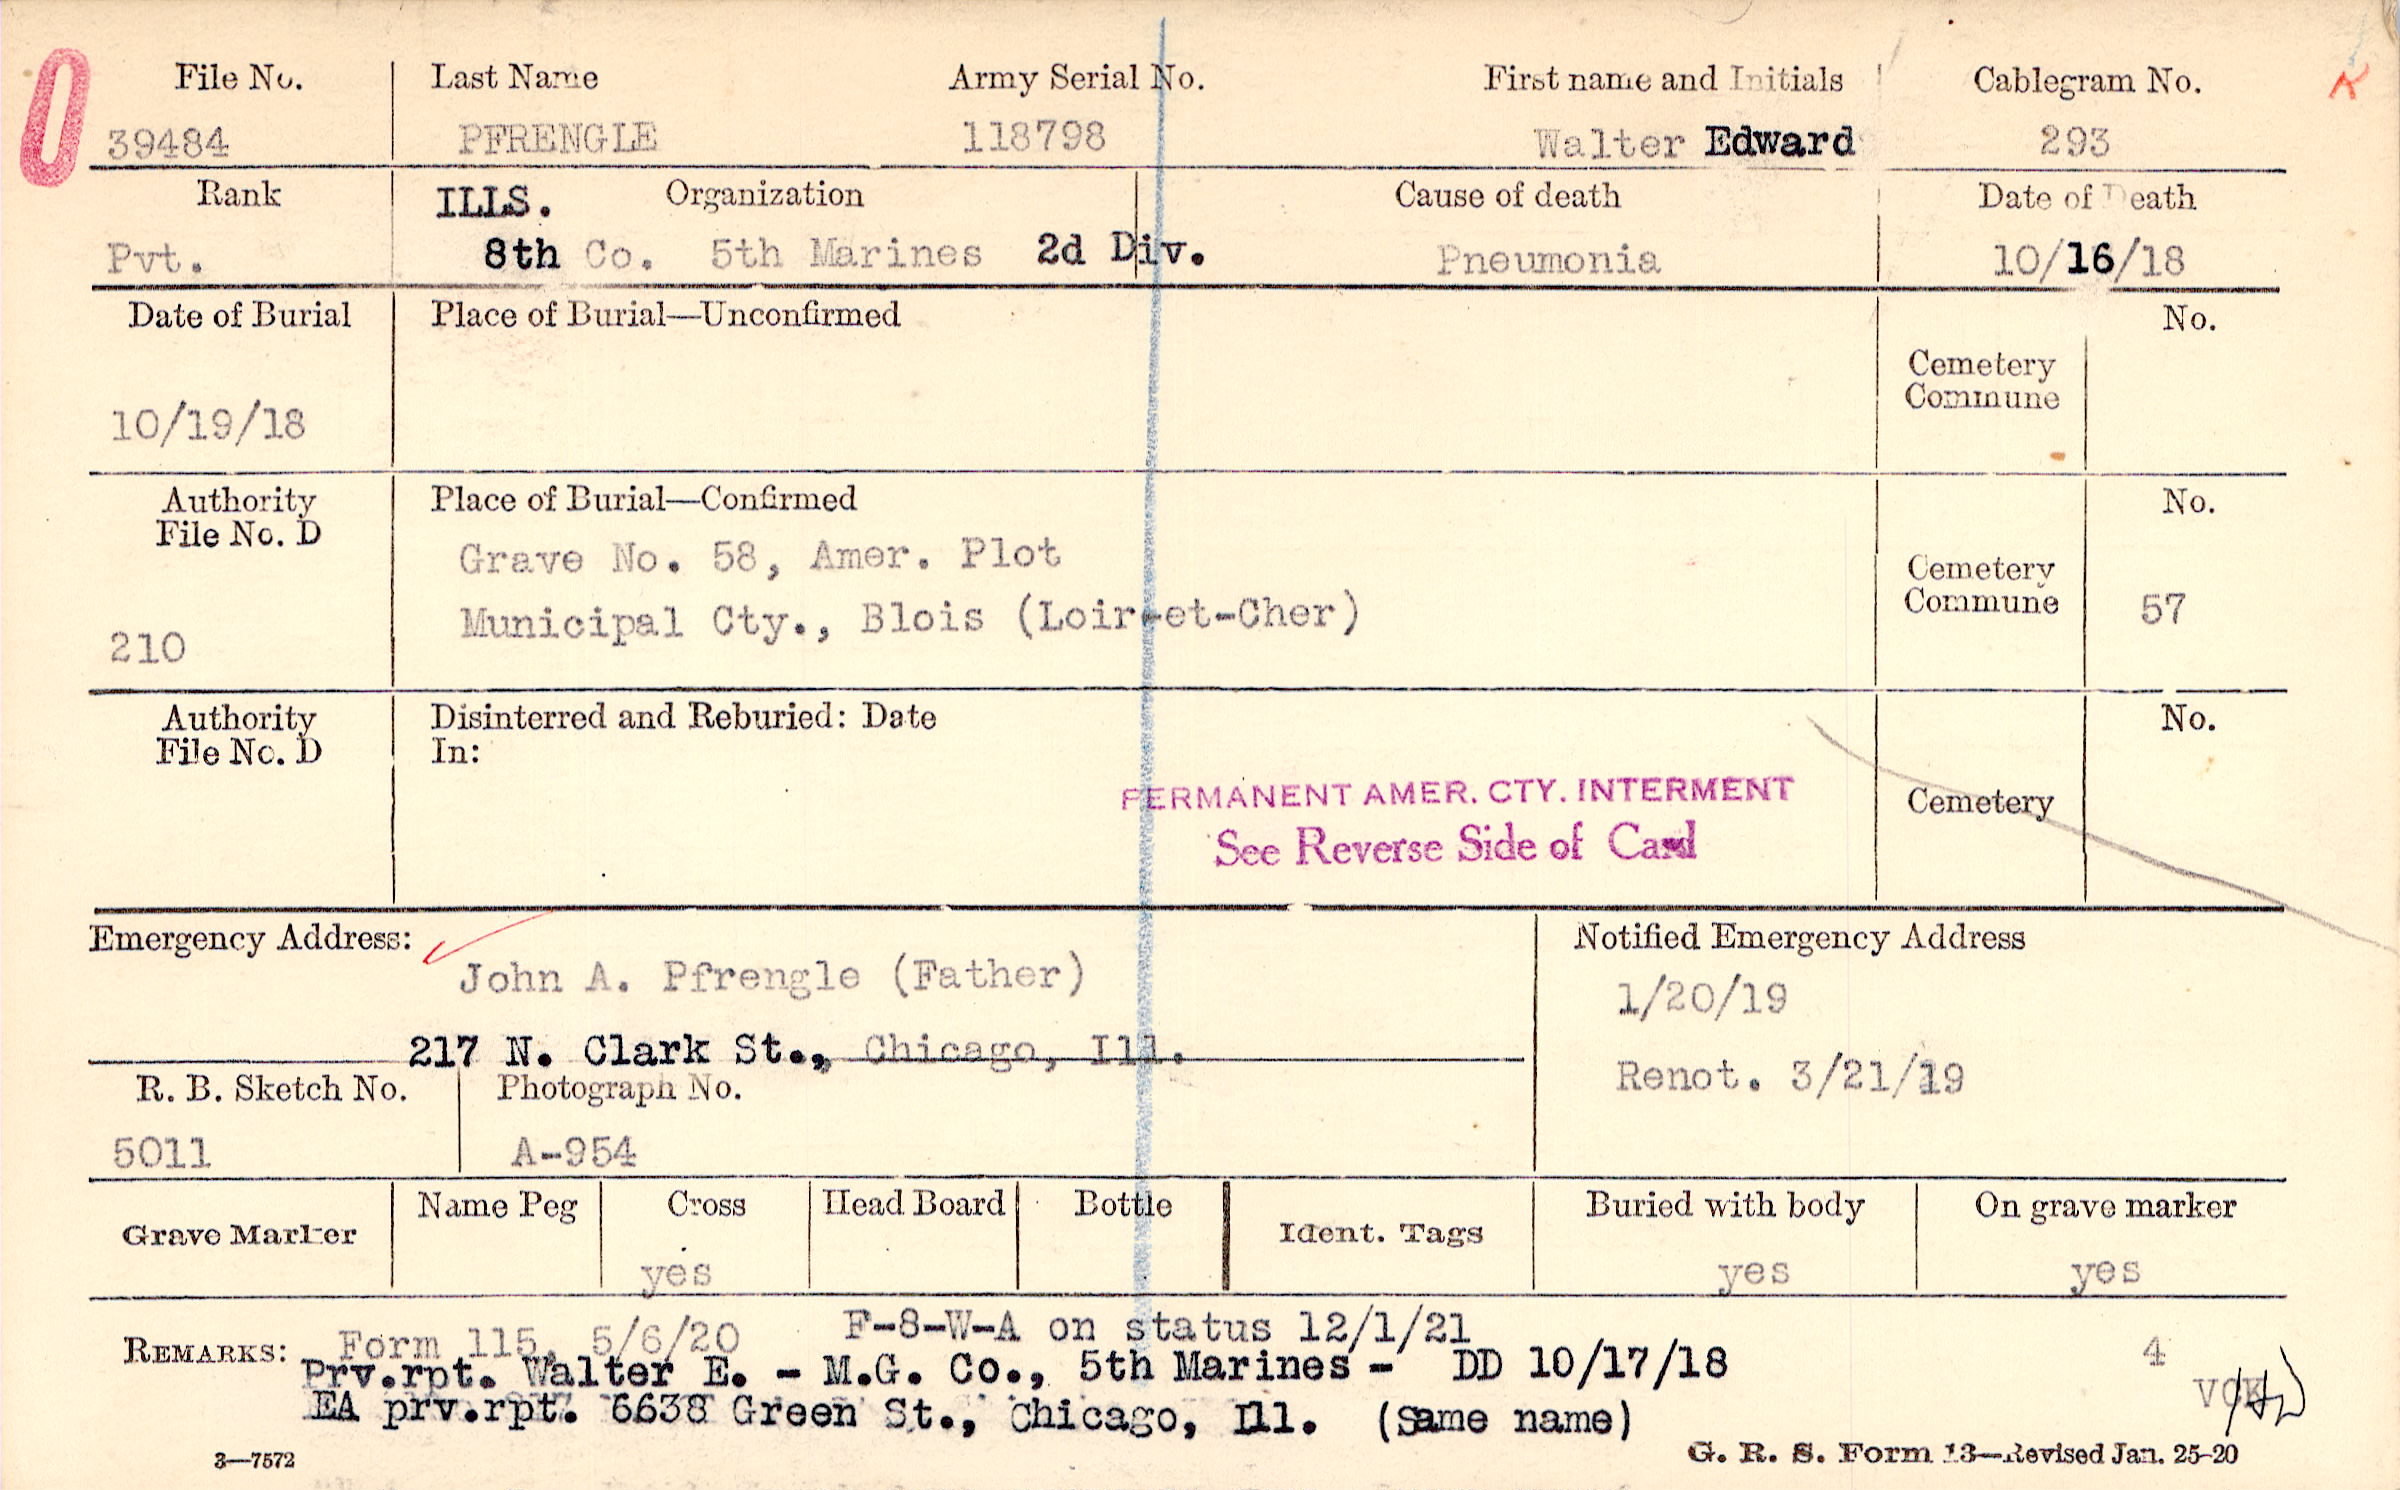 0
File No. Last Name Army Serial No. First name and Initials Cablegram No. K
39484 PFRENGLE 118798 Walter Edward 293
Rank ILLS. Organization Cause of death Date of Death
Pvt. 8th Co. 5th Marines 2d Div. Pneumonia 10/16/18
Date of Burial Place of Burial—Unconfirmed No.
Cemetery
Commune
10/19/18
Authority Place of Burial—Confirmed No.
File No. D
Grave No. 58, Amer. Plot
Cemetery
Commune 57
Municipal Cty., Blois (Loir-et-Cher)
210
Authority Disinterred and Reburied: Date No.
File No. D In:
PERMANENT AMER. CTY. INTERMENT
Cemetery
See Reverse Side of Card
Emergency Address: Notified Emergency Address
John A. Pfrengle (Father)
1/20/19
217 N. Clark St., Chicago, Ill.
Renot. 3/21/19
R. B. Sketch No. Photograph No.
5011 A-954
Grave Marker Name Peg Cross Head Board Bottle Ident. Tags Buried with body On grave marker
yes yes yes
REMARKS: Form 115, 5/6/20 F-8-W-A on status 12/1/21
4
Prv.rpt. Walter E. - M.G. Co., 5th Marines - DD 10/17/18
EA prv.rpt. 6638 Green St., Chicago, Ill. (Same name)
3—7572 G. R. S. Form 13—Revised Jan. 25-20